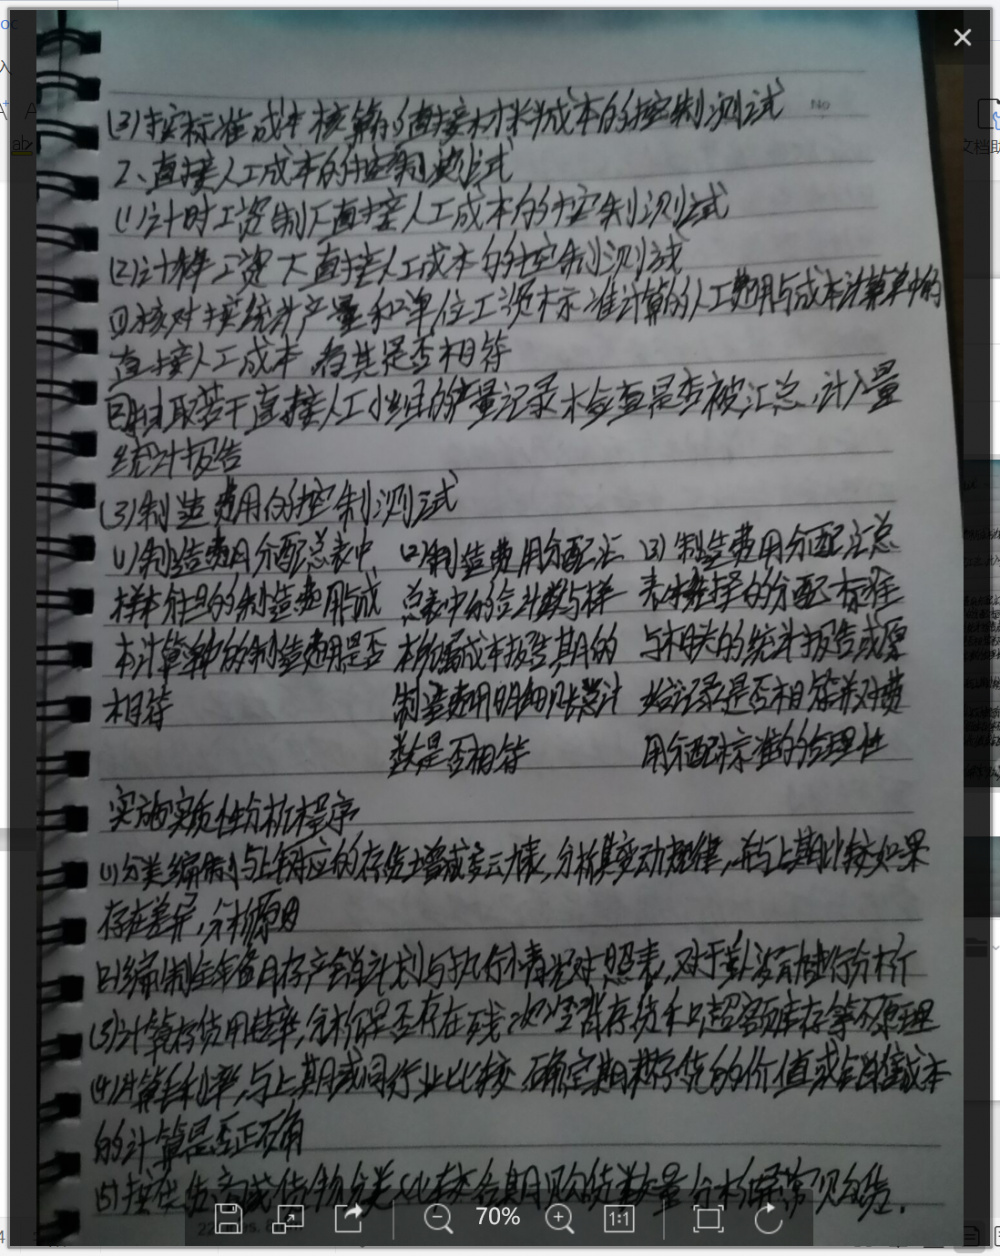 (3)按标准成本核算的直接材料成本的控制测试
No
2、直接人工成本的控制测试
(1)计时工资制下直接人工成本的控制测试
(2)计件工资下直接人工成本的控制测试
核对按统计产量和单位工资标准计算的人工费用与成本计算单中的
直接人工成本,看其是否相符
抽取若干直接人工小组的产量记录 检查是否被汇总,计入量
统计报告
(3)制造费用的控制测试
(1)制造费用分配总表中
样本 的制造费用与成
本计算单中的制造费用是否
相符
(2)制造费用分配汇
总表中的合计数与样
本所属成本报告期的
制造费用明细账总计
数是否相符
(3)制造费用分配汇总
表中选择的分配标准
与相关的统计报告或原
始记录是否相符并对费
用分配标准的合理性
实施实质性分析程序
(1)分类编制与上年对应的存货增减变动表,分析其变动规律,并与上期比较如果
存在差异,分析原因
编制全年各月存 产 计划与执行情况对照表,对于 进行分析
(3)计算存货周转率,分析是否存在残次 存货和超额库存等不 理
(4)计算毛利率,与上期或同行业比较 确定期末存货的价值或 成本
的计算是否正确
(5)按供货商或货物分类,比较各期购货数量 分析异常购货.
70%
1:1
文档助